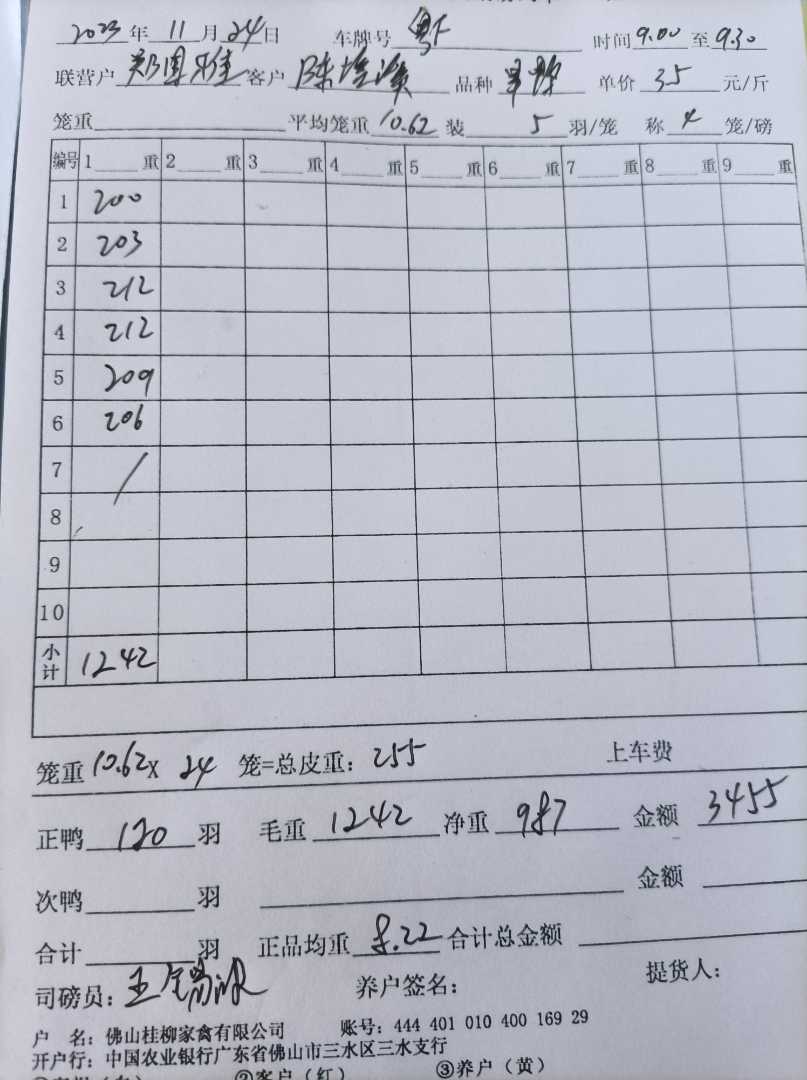 2023年 11 月 24 日 车牌号 粤F 时间 9.00 至 9.30
联营户 郑国雄 客户 陈培 品种 单价 3.5 元/斤
笼重 平均笼重 10.62 装 5 羽/笼 称 4 笼/磅
编号 1 重 2 重 3 重 4 重 5 重 6 重 7 重 8 重 9 重
1 200
2 203
3 212
4 212
5 209
6 206
7 /
8
9
10
小计 1242
笼重 10.62 X 24 笼=总皮重: 255 上车费
正鸭 120 羽 毛重 1242 净重 987 金额 3455
次鸭 羽 金额
合计 羽 正品均重 8.22 合计总金额
司磅员: 王 养户签名: 提货人:
户 名: 佛山桂柳家禽有限公司 账号: 444 401 010 400 169 29
开户行: 中国农业银行广东省佛山市三水区三水支行
②客户 (红) ③养户 (黄)